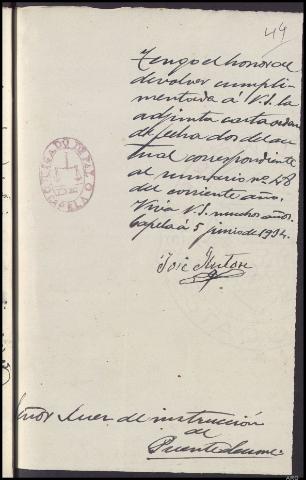 44
Tengo el honor de
devolver cumpli-
mentada á V.S. la
adjunta carta orden
de fecha dos del ac-
tual correspondiente
al sumario nº 48
del corriente año.
Viva V.S. muchos años.
Capela á 5 junio de 1934.
José
JUZGADO MUNICIPAL
CAPELA
Señor Juez de instrucción
de
Puentedeume